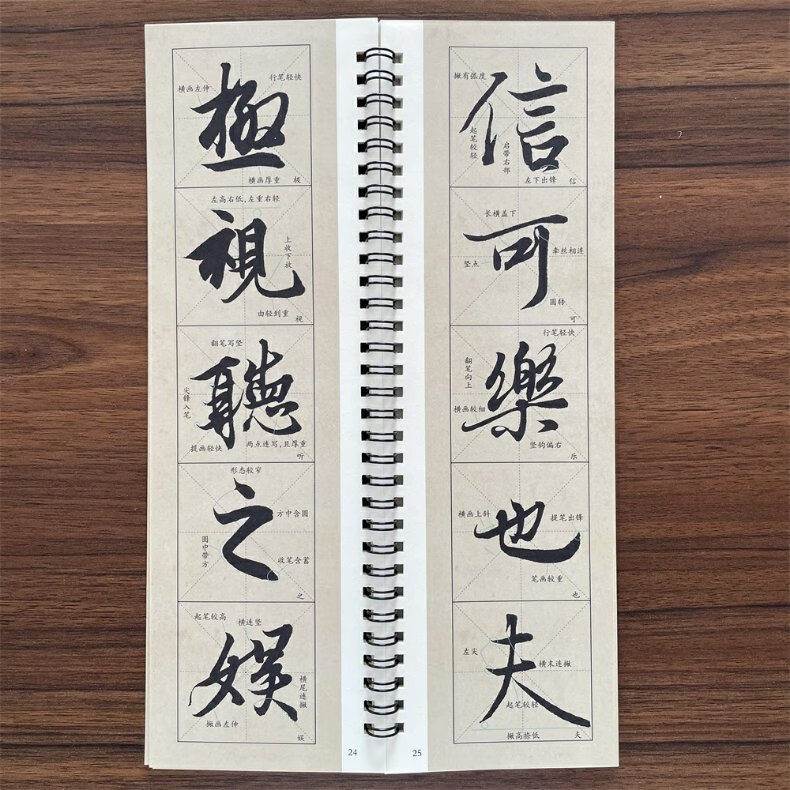 極
行笔轻快
横画左伸
横画厚重
极
視
左高右低,左重右轻
上收下放
由轻到重
视
聽
翻笔写竖
尖锋入笔
提画轻快
两点连写,且厚重
听
之
形态较窄
方中含圆
圆中带方
收笔含蓄
之
娱
起笔较高
横连竖
横尾连撇
撇画左伸
娱
24
信
撇有弧度
起笔较轻
启带右部
左下出锋
信
可
长横盖下
牵丝相连
竖点
圆转
可
樂
行笔轻快
翻笔向上
横画较细
竖钩偏右
乐
也
横画上斜
提笔出锋
笔画较重
也
夫
左尖
横末连撇
起笔较轻
撇高捺低
夫
25